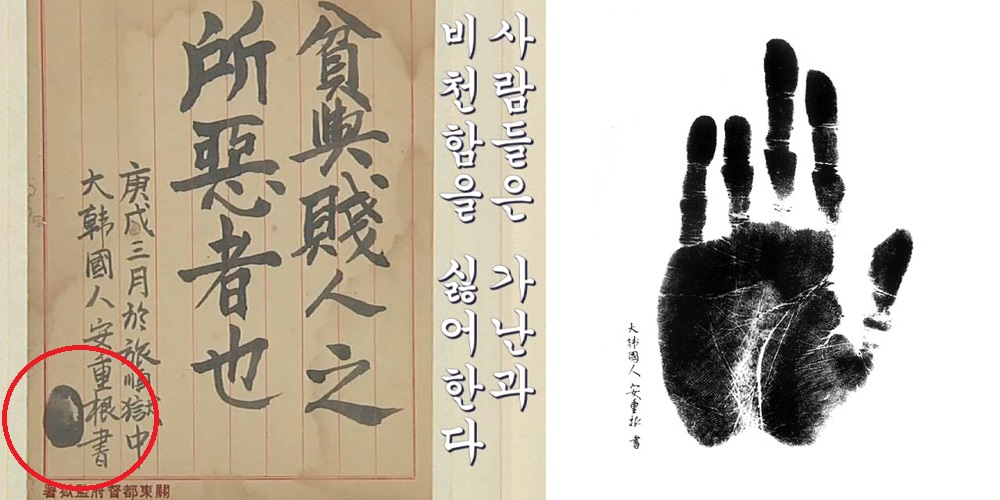 사람들은 가난과
비천함을 싫어한다
貧與賤人之
所惡者也
庚戌三月於旅順獄中
大韓國人安重根書
關東都督府監獄署
大韓國人 安重根 書